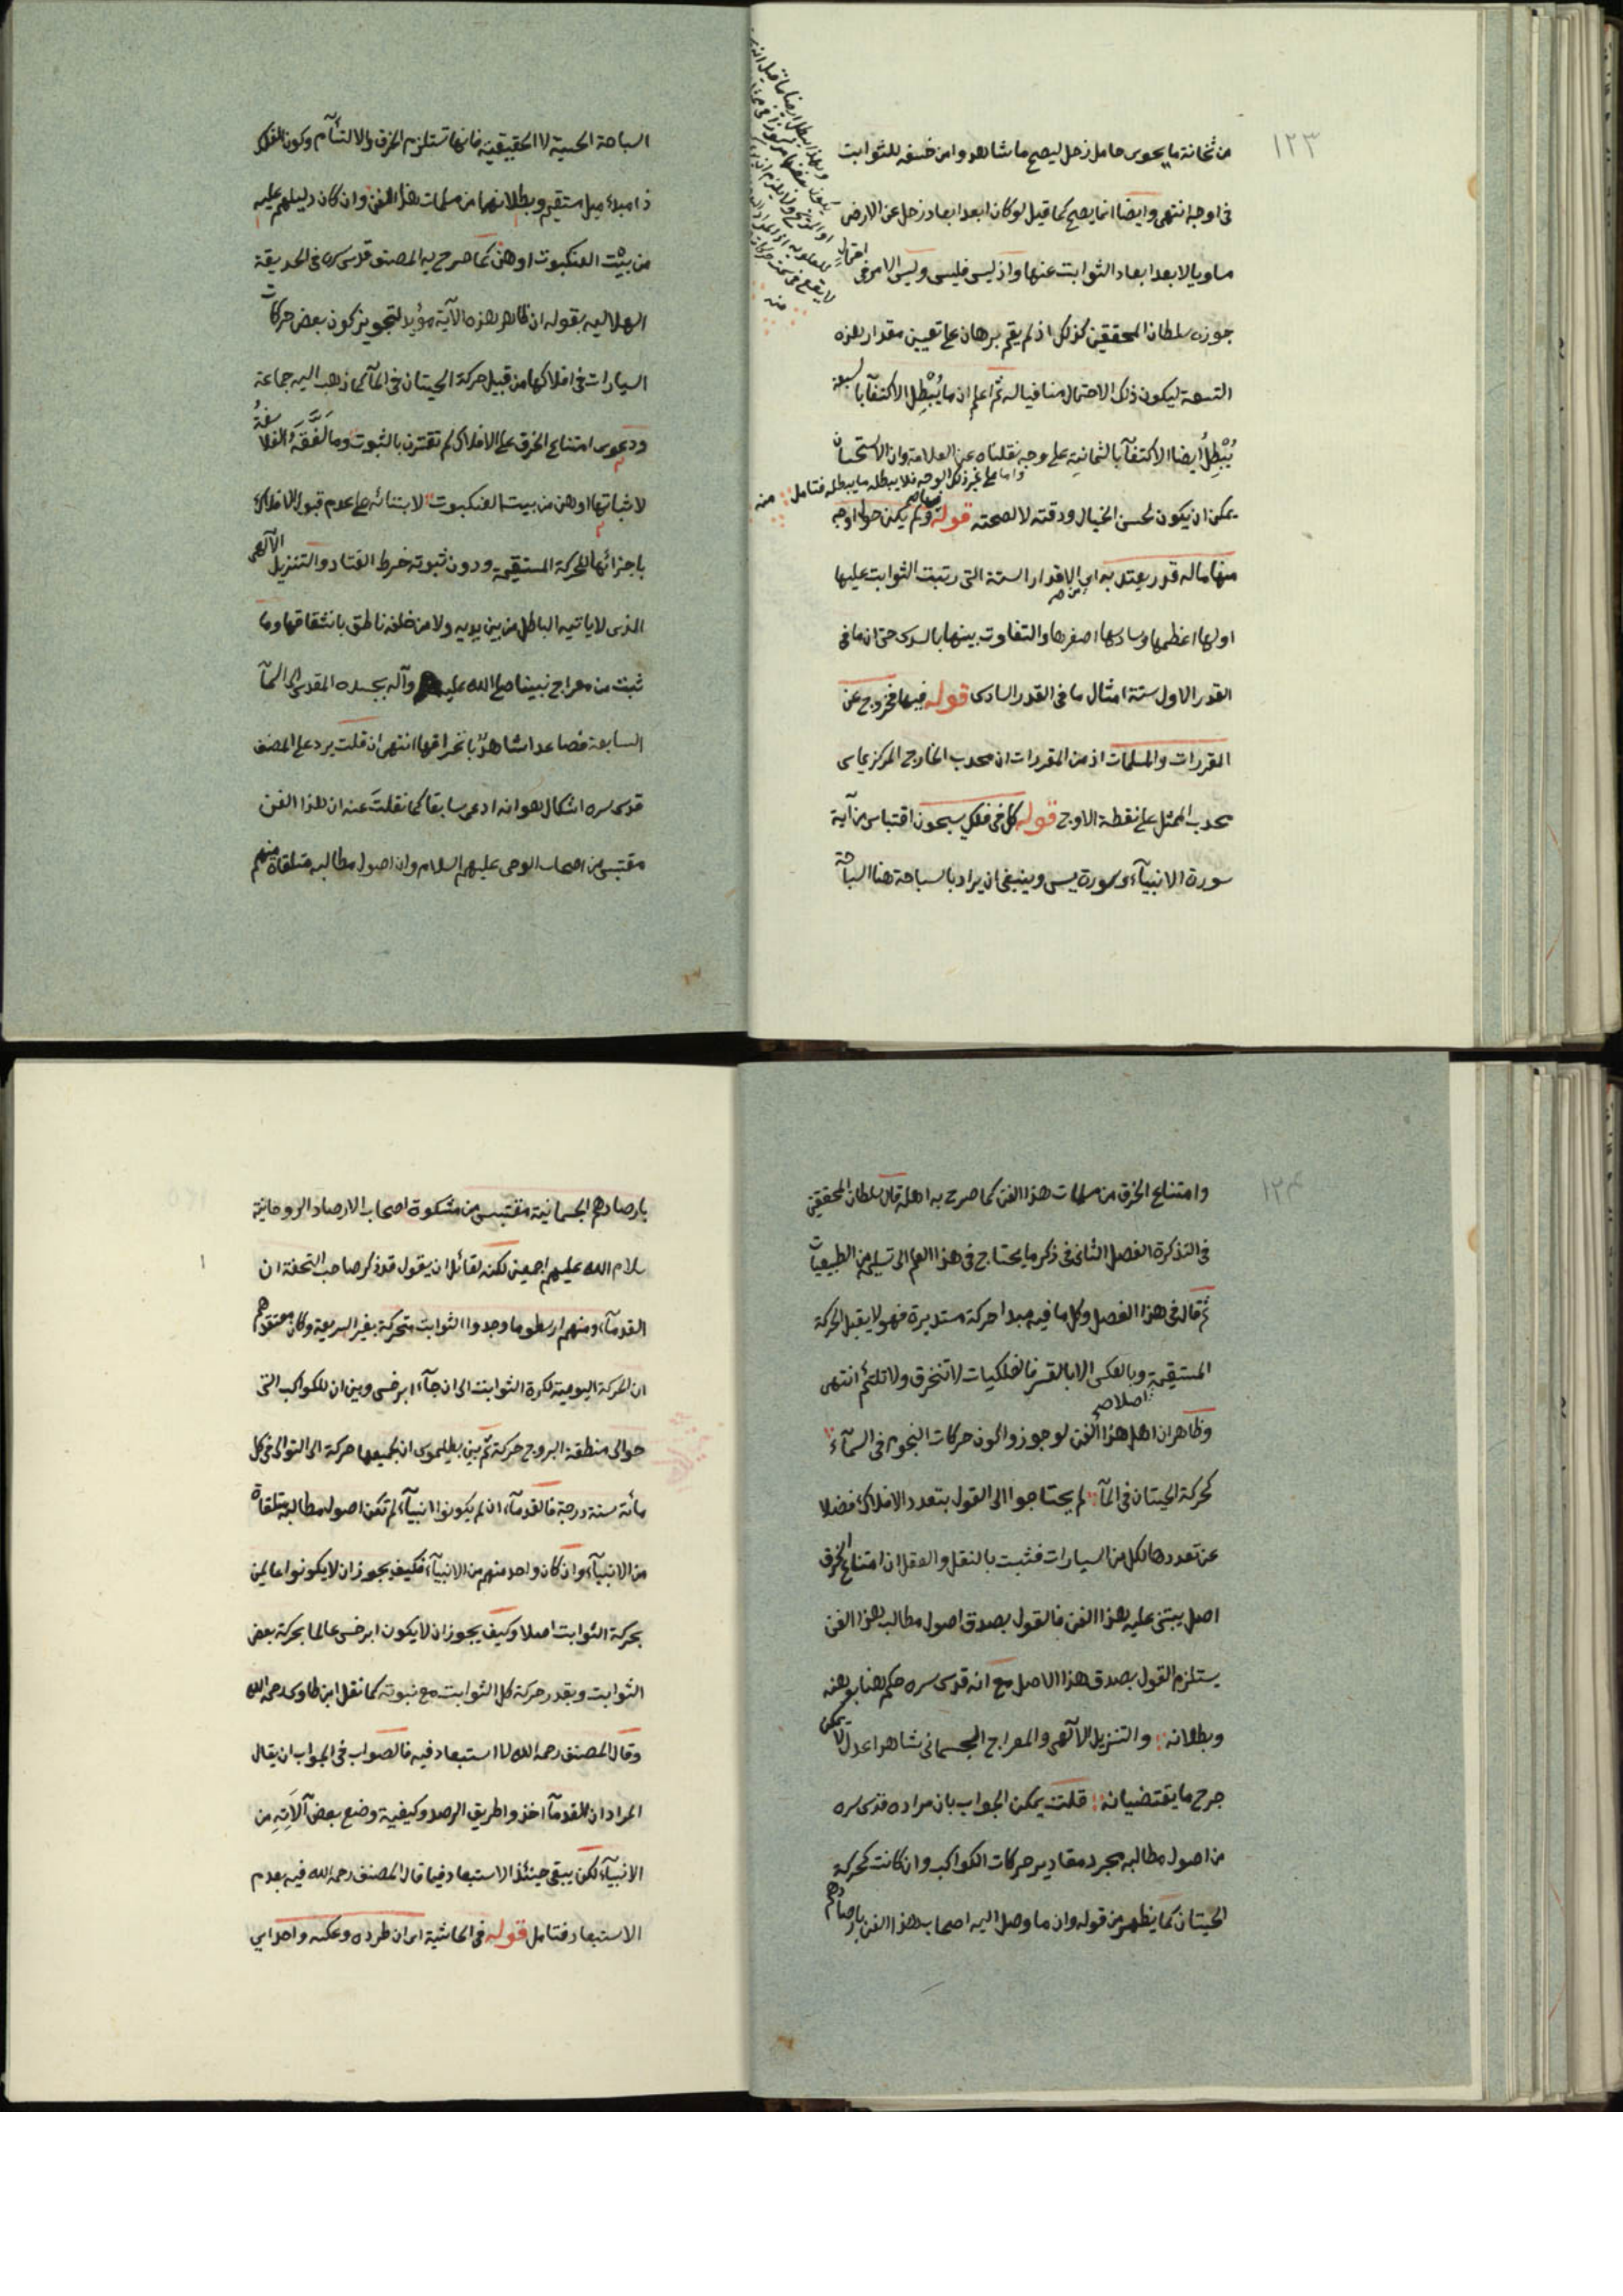 ١٢٣
من ثخانة ما يحوى حامل زحل ليصح ما شاهدوا من خسفه للثوابت
فى اوجه انتهى وايضا انما يصح كما قيل لو كان ابعد ابعاد زحل عن الارض
مساويا لابعد ابعاد الثوابت عنها واذ ليس فليس وليس الامر فى
جوزه سلطان المحققين كذلك اذ لم يقم برهان على تعيين مقدار هذه
التسعة ليكون ذلك الاحتمال منافيا له ثم اعلم ان ما يُبْطِل الاكتفآء بالسبعة
يُبْطِلُ ايضا الاكتفآء بالثمانية على وجه نقلناه عن العلامة وان الاستحسان
واما على غير ذلك الوجه فلا يبطله ما يبطله فتامل منه
يمكن ان يكون لحسن الخيال ودقته لا لصحته قوله ولم يكن حوالى اوجه
منها ماله قدر يعتد به اى من الاقدار الستة التى رتبت الثوابت عليها
اولها اعظمها وسادسها اصغرها والتفاوت بينها بالسدس حتى ان ما فى
القدر الاول ستة امثال ما فى القدر السادس قوله فيها فخروج عن
المقررات والمسلمات اذ من المقررات ان محدب الخارج المركز يماس
محدب الممثل على نقطة الاوج قوله كل فى فلك يسبحون اقتباس من آية
سورة الانبيآء وسورة يس وينبغى ان يراد بالسباحة هنا السباحة
السباحة الحسية لا الحقيقية فانها تستلزم الخرق والالتئآم وكون الفلك
ذا مبدء ميل مستقيم وبطلانهما من مسلمات هذا الفن وان كان دليلهم عليه
من بيت العنكبوت اوهن كما صرح به المصنف قدس سره فى الحديقة
الهلالية بقوله ان ظاهر هذه الآية مؤيد لتجويز كون بعض حركات
السيارات فى افلاكها من قبيل حركة الحيتان فى المآء كما ذهب اليه جماعة
ودعوى امتناع الخرق على الافلاك لم تقترن بالثبوت وما لَفَّقَهُ الفلاسفةُ
لاثباتها اوهن من بيت العنكبوت لابتنائه على عدم قبول الافلاك
باجزائها للحركة المستقيمة ودون ثبوته خرط القتاد والتنزيل الآلهى
الذى لا ياتيه الباطل من بين يديه ولا من خلفه ناطق بانشقاقها وما
ثبت من معراج نبينا صلى الله عليه وآله بجسده المقدس الى السمآء
السابعة فصاعدا شاهدٌ بانخراقها انتهى ان قلت يرد على المصنف
قدس سره اشكال هو انه ادعى سابقا كما نقلتَ عنه ان هذا الفن
مقتبس من اصحاب الوحى عليهم السلام وان اصول مطالبه متلقاة منهم
١٢٤
وامتناع الخرق من مسلمات هذا الفن كما صرح به اهله قال سلطان المحققين
فى التذكرة الفصل الثانى فى ذكر ما يحتاج فى هذا العلم الى تسليمه من الطبيعيات
ثم قال فى هذا الفصل وكل ما فيه مبدا حركة مستديرة فهو لا يقبل الحركة
المستقيمة وبالعكس الا بالقسر فالفلكيات لا تنخرق ولا تلتئم انتهى
اصلا صح
وظاهر ان اهل هذا الفن لو جوزوا كون حركات النجوم فى السمآء
كحركة الحيتان فى المآء لم يحتاجوا الى القول بتعدد الافلاك فضلا
عن تعددها لكل من السيارات فثبت بالنقل والعقل ان امتناع الخرق
اصل يبتنى عليه هذا الفن فالقول بصدق اصول مطالب هذا الفن
يستلزم القول بصدق هذا الاصل مع انه قدس سره حكم هنا بوهنه
وبطلانه والتنزيل الآلهى والمعراج الجسمانى شاهدا عدل لا يمكن
جرح ما يقتضيانه قلت يمكن الجواب بان مراده قدس سره
من اصول مطالبه مجرد مقادير حركات الكواكب وان كانت كحركة
الحيتان كما يظهر من قوله وان ما وصل اليه اصحاب هذا الفن بارصادهم
بارصادهم الجسمانية مقتبس من مشكوة اصحاب الارصاد الروحانية
سلام الله عليهم اجمعين لكنه لقائل ان يقول قد ذكر صاحب التحفة ان
القدمآء ومنهم ارسطو ما وجدوا الثوابت متحركة بغير السريعة وكان معتقدهم
ان الحركة اليومية لكرة الثوابت الى ان جآء ابرخس وبين ان للكواكب التى
حوالى منطقة البروج حركة ثم بين بطليموس ان لجميعها حركة الى التوالى فى كل
مائة سنة درجة فالقدمآء ان لم يكونوا انبيآء لم تكن اصول مطالبهم متلقاة
من الانبيآء وان كان واحد منهم من الانبيآء فكيف يجوز ان لا يكونوا عالمين
بحركة الثوابت اصلا وكيف يجوز ان لا يكون ابرخس عالما بحركة بعض
الثوابت وبقدر حركة كل الثوابت مع نبوته كما نقل ابن طاوس رحمه الله
وقال المصنف رحمه الله لا استبعاد فيه فالصواب فى الجواب ان يقال
المراد ان القدمآء اخذوا طريق الرصد وكيفية وضع بعض آلآتِهِ من
الانبيآء لكن يبقى حينئذ الاستبعاد فيما قال المصنف رحمه الله فيه بعدم
الاستبعاد فتامل قوله فى الحاشية اى ان طرده وعكسه واحد اى